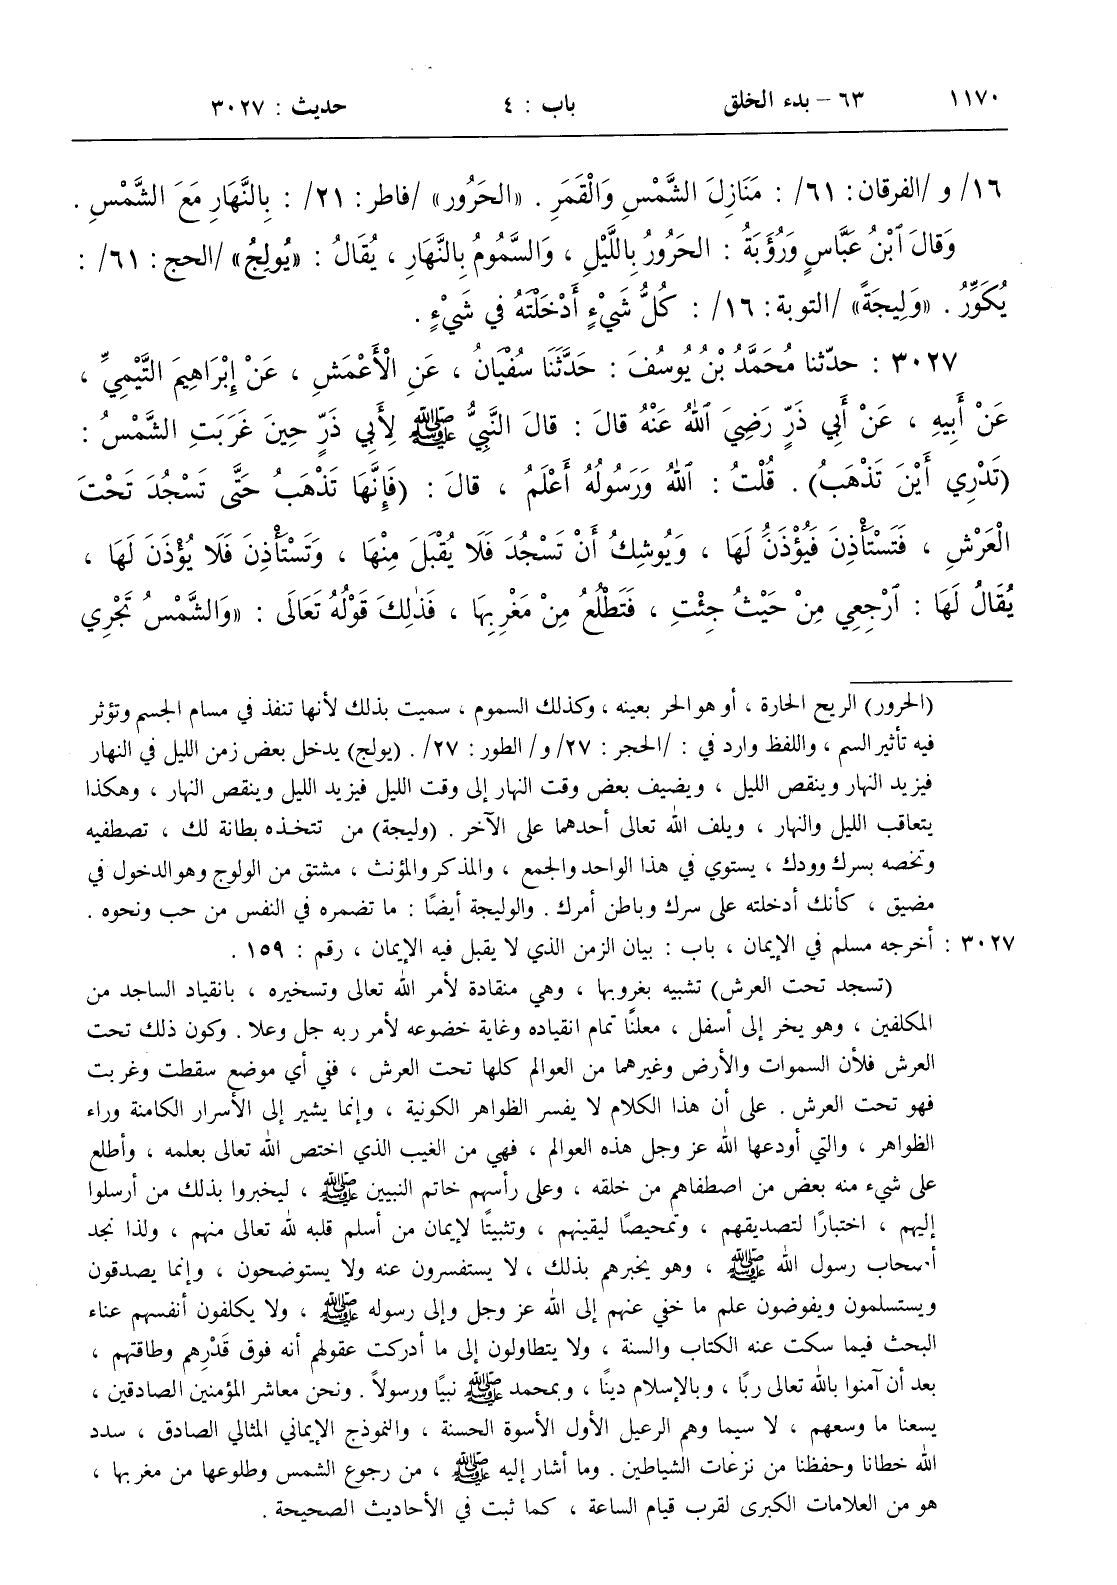 ١١٧٠ ٦٣ – بدء الخلق باب : ٤ حديث : ٣٠٢٧
١٦/ و /الفرقان: ٦١/ : مَنَازِلَ الشَّمْسِ وَالْقَمَرِ . «الحَرُور» /فاطر: ٢١/ : بِالنَّهَارِ مَعَ الشَّمْسِ .
وَقالَ ٱبْنُ عَبَّاسٍ وَرُؤْبَةُ : الحَرُورُ بِاللَّيْلِ ، وَالسَّمُومُ بِالنَّهَارِ ، يُقَالُ : «يُولِجُ» /الحج: ٦١/ :
يُكَوِّرُ . «وَلِيجَةً» /التوبة: ١٦/ : كُلُّ شَيْءٍ أَدْخَلْتَهُ في شَيْءٍ .
٣٠٢٧ : حدّثنا مُحَمَّدُ بْنُ يُوسُفَ : حَدَّثَنَا سُفْيَانُ ، عَنِ الْأَعْمَشِ ، عَنْ إِبْرَاهِيمَ التَّيْمِيِّ ،
عَنْ أَبِيهِ ، عَنْ أَبِي ذَرٍّ رَضِيَ ٱللهُ عَنْهُ قالَ : قالَ النَّبِيُّ ﷺ لِأَبِي ذَرٍّ حِينَ غَرَبَتِ الشَّمْسُ :
(تَدْرِي أَيْنَ تَذْهَبُ) . قُلْتُ : ٱللهُ وَرَسُولُهُ أَعْلَمُ ، قالَ : (فَإِنَّهَا تَذْهَبُ حَتَّى تَسْجُدَ تَحْتَ
الْعَرْشِ ، فَتَسْتَأْذِنَ فَيُؤْذَنُ لَهَا ، وَيُوشِكُ أَنْ تَسْجُدَ فَلَا يُقْبَلَ مِنْهَا ، وَتَسْتَأْذِنَ فَلَا يُؤْذَنَ لَهَا ،
يُقَالُ لَهَا : ٱرْجِعِي مِنْ حَيْثُ جِئْتِ ، فَتَطْلُعُ مِنْ مَغْرِبِهَا ، فَذٰلِكَ قَوْلُهُ تَعَالَى : «وَالشَّمْسُ تَجْرِي
(الحرور) الريح الحارة ، أو هو الحر بعينه ، وكذلك السموم ، سميت بذلك لأنها تنفذ في مسام الجسم وتؤثر
فيه تأثير السم ، واللفظ وارد في : /الحجر: ٢٧/ و/ الطور: ٢٧/ . (يولج) يدخل بعض زمن الليل في النهار
فيزيد النهار وينقص الليل ، ويضيف بعض وقت النهار إلى وقت الليل فيزيد الليل وينقص النهار ، وهكذا
يتعاقب الليل والنهار ، ويلف الله تعالى أحدهما على الآخر . (وليجة) من تتخذه بطانة لك ، تصطفيه
وتخصه بسرك وودك ، يستوي في هذا الواحد والجمع ، والمذكر والمؤنث ، مشتق من الولوج وهو الدخول في
مضيق ، كأنك أدخلته على سرك وباطن أمرك . والوليجة أيضًا : ما تضمره في النفس من حب ونحوه .
٣٠٢٧ : أخرجه مسلم في الإيمان ، باب : بيان الزمن الذي لا يقبل فيه الإيمان ، رقم : ١٥٩ .
(تسجد تحت العرش) تشبيه بغروبها ، وهي منقادة لأمر الله تعالى وتسخيره ، بانقياد الساجد من
المكلفين ، وهو يخر إلى أسفل ، معلنًا تمام انقياده وغاية خضوعه لأمر ربه جل وعلا . وكون ذلك تحت
العرش فلأن السموات والأرض وغيرهما من العوالم كلها تحت العرش ، ففي أي موضع سقطت وغربت
فهو تحت العرش . على أن هذا الكلام لا يفسر الظواهر الكونية ، وإنما يشير إلى الأسرار الكامنة وراء
الظواهر ، والتي أودعها الله عز وجل هذه العوالم ، فهي من الغيب الذي اختص الله تعالى بعلمه ، وأطلع
على شيء منه بعض من اصطفاهم من خلقه ، وعلى رأسهم خاتم النبيين ﷺ ، ليخبروا بذلك من أرسلوا
إليهم ، اختبارًا لتصديقهم ، وتمحيصًا ليقينهم ، وتثبيتًا لإيمان من أسلم قلبه لله تعالى منهم ، ولذا نجد
أصحاب رسول الله ﷺ ، وهو يخبرهم بذلك ، لا يستفسرون عنه ولا يستوضحون ، وإنما يصدقون
ويستسلمون ويفوضون علم ما خفي عنهم إلى الله عز وجل وإلى رسوله ﷺ ، ولا يكلفون أنفسهم عناء
البحث فيما سكت عنه الكتاب والسنة ، ولا يتطاولون إلى ما أدركت عقولهم أنه فوق قَدْرِهم وطاقتهم ،
بعد أن آمنوا بالله تعالى ربًا ، وبالإسلام دينًا ، وبمحمد ﷺ نبيًا ورسولاً . ونحن معاشر المؤمنين الصادقين ،
يسعنا ما وسعهم ، لا سيما وهم الرعيل الأول الأسوة الحسنة ، والنموذج الإيماني المثالي الصادق ، سدد
الله خطانا وحفظنا من نزغات الشياطين . وما أشار إليه ﷺ ، من رجوع الشمس وطلوعها من مغربها ،
هو من العلامات الكبرى لقرب قيام الساعة ، كما ثبت في الأحاديث الصحيحة .